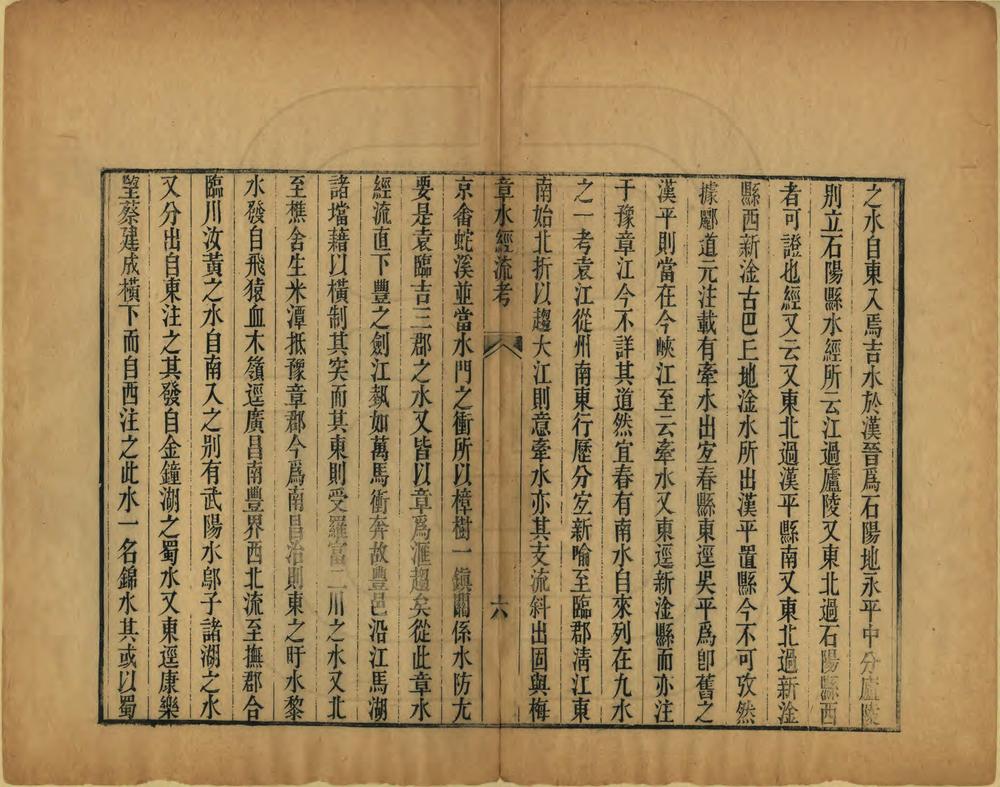 之水自東入焉吉水於漢晉爲石陽地永平中分廬陵
别立石陽縣水經所云江過廬陵又東北過石陽縣西
者可證也經又云又東北過漢平縣南又東北過新淦
縣西新淦古巴丘地淦水所出漢平置縣今不可攷然
據酈道元注載有牽水出宜春縣東逕吳平爲卽舊之
漢平則當在今峽江至云牽水又東逕新淦縣而亦注
于豫章江今不詳其道然宜春有南水自來列在九水
之一考袁江從州南東行歷分宜新喻至臨郡淸江東
南始北折以趨大江則意牽水亦其支流斜出固與梅
章水經流考
六
京畬蛇溪並當水門之衝所以樟樹一鎮關係水防尢
要是袁臨吉三郡之水又皆以章爲滙趨矣從此章水
經流直下豐之劍江埶如萬馬衝奔故豐邑沿江馬湖
諸壋藉以橫制其突而其東則受羅富二川之水又北
至樵舍生米潭抵豫章郡今爲南昌治則東之盱水黎
水發自飛猿血木嶺逕廣昌南豐界西北流至撫郡合
臨川汝黃之水自南入之别有武陽水鄔子諸湖之水
又分出自東注之其發自金鐘湖之蜀水又東逕康樂
望蔡建成橫下而自西注之此水一名錦水其或以蜀